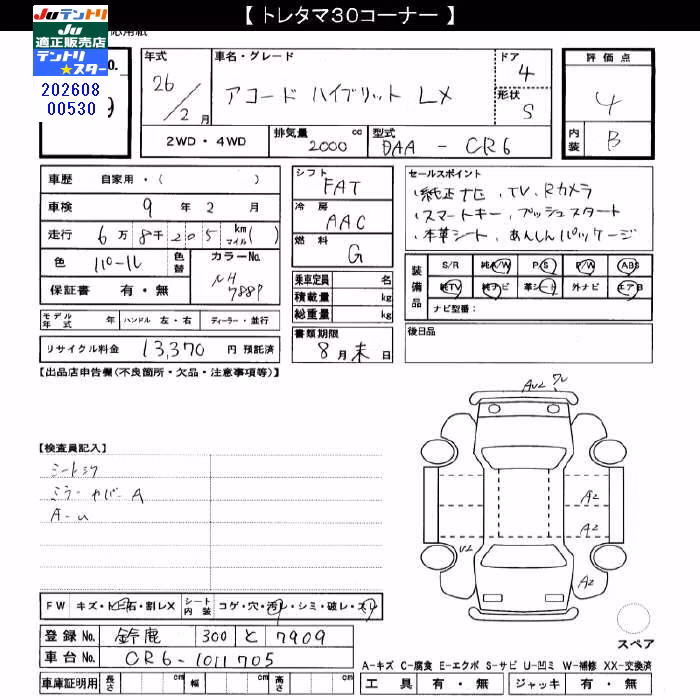 【 トレタマ30コーナー 】
JUテントリ
JU
適正販売店
テントリ
★スター
応用紙
202608
00530
年式
26/2月
車名・グレード
アコード ハイブリット LX
ドア
4
形状
S
2WD・4WD
排気量
2000 cc
型式
DAA - CR6
評価点
4
内装
B
車歴 自家用・( )
車検 9年 2月
走行 6万 8千 205 km マイル( )
色 パール
色替
カラーNo.
NH
788P
保証書 有・無
モデル年式 年 ハンドル 左・右 ディーラー・並行
リサイクル料金 13,370 円 預託済
シフト
FAT
冷房
AAC
燃料
G
乗車定員 名
積載量 kg
総重量 kg
書類期限
8月末日
セールスポイント
・純正ナビ、TV、Rカメラ
・スマートキー、プッシュスタート
・本革シート、あんしんパッケージ
装備品
S/R 純A/W P/S P/W ABS
純TV 純ナビ 革シート 外ナビ エアB
ナビ型番:
後日品
【出品店申告欄(不良箇所・欠品・注意事項等)】
【検査員記入】
シートシワ
ミラーカバーA
A-U
AU2
A2
A2
U2
A2
スペア
FW キズ・トビ石・割レX シート内装 コゲ・穴・汚レ・シミ・破レ・スレ
登録No. 鈴鹿 300 と 7909
車台No. CR6-1011705
車庫証明用 長さ cm 幅 cm 高さ cm
A-キズ C-腐食 E-エクボ S-サビ U-凹ミ W-補修 XX-交換済
工具 有・無 ジャッキ 有・無